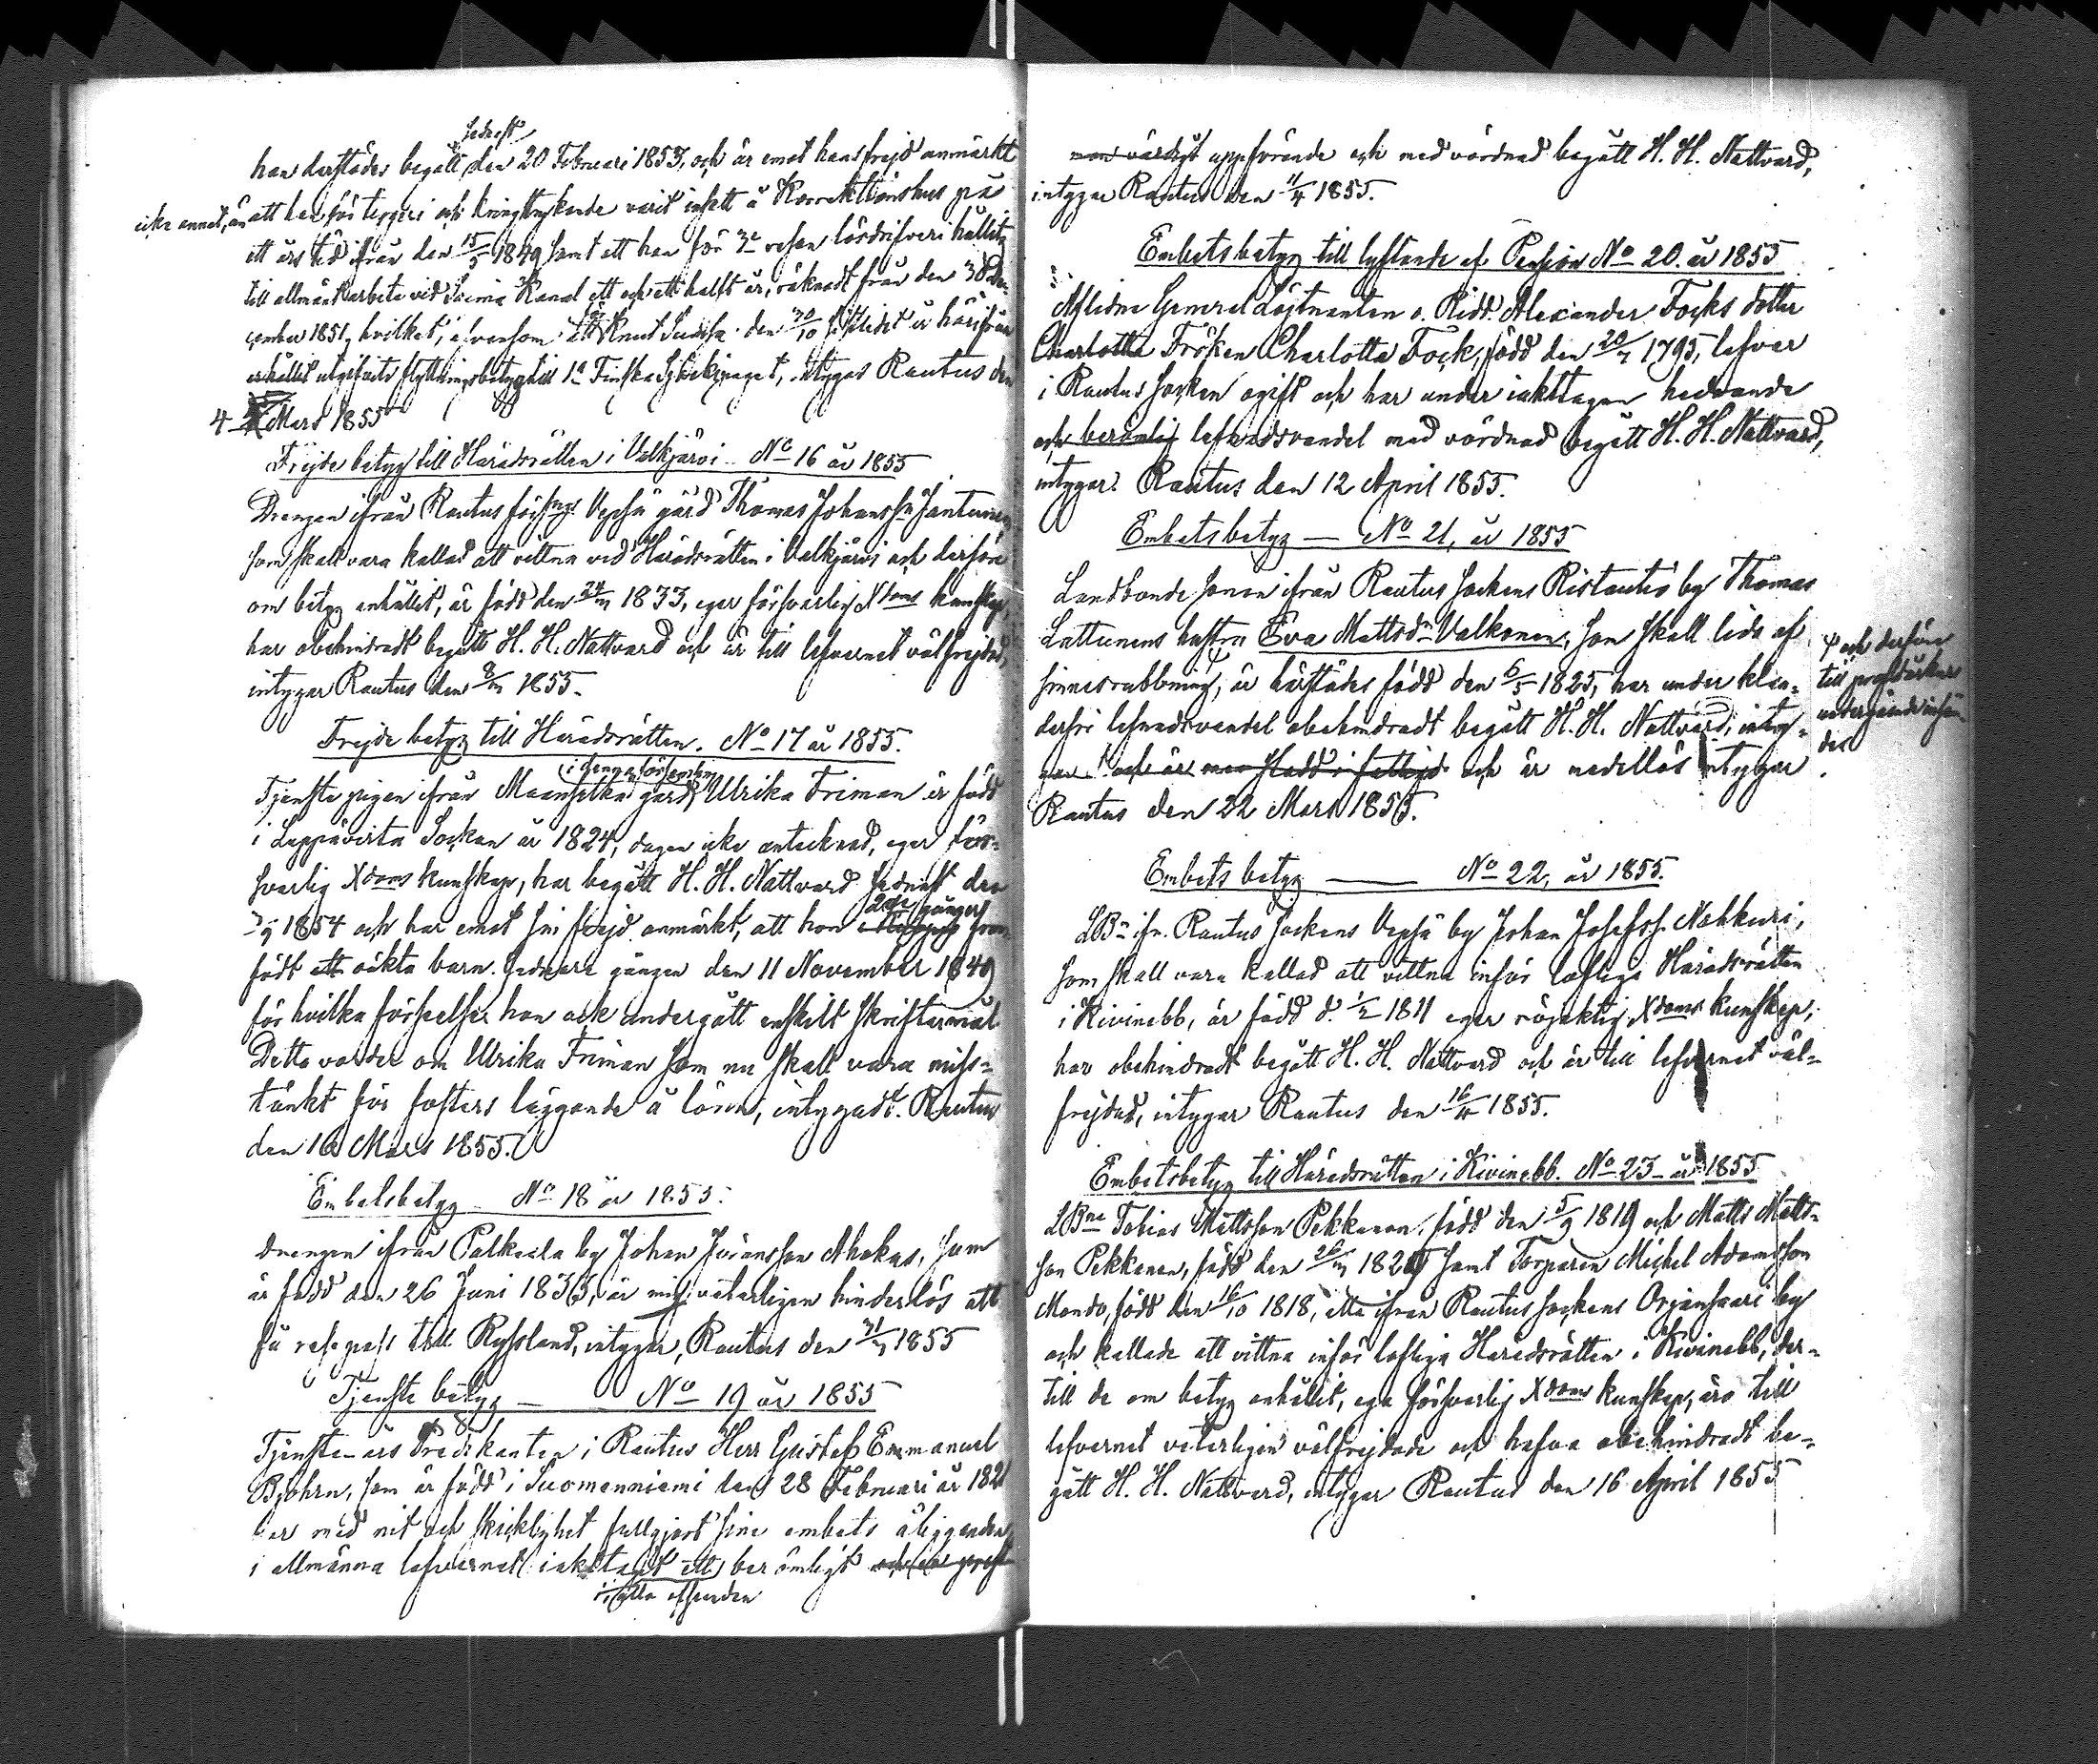 sednast
han derstädes begått den 20 Februari 1853, och är emot hans frejd anmärkt
icke annat, än att han för tiggeri och kringstrykande varit insatt å Korrektionshus på
ett års tid ifrån den 15/5 1849 samt att han för resan lösdrifveri hållits
till allmänt arbete vid Saima Kanal ett och ett halft år, räknadt från den 30 De-
cember 1851, hvilket, äfvensom att Knut den 30/10 sistlidet år härifrån
erhållit utgifvits flyttningsbetyg till 1a Finska Sjöekipaget, intygas Rautus den
4 Mars 1855
Frejde betyg till Häradsrätten i Valkjärvi No 16 år 1855
Drengen ifrån Rautus förs:gs Vepsä gård Thomas Johanss:n Jantunen
som skall vara kallad att vittna vid Häradsrätten i Valkjärvi och derföre
om betyg anhållit, är född den 24/3 1833, eger försvarlig Xdoms kunskap,
har obehindradt begått H. H. Nattvard och är till lefvernet välfrejdad,
intygar Rautus den 8/3 1855.
Frejde betyg till Häradsrätten. No 17 år 1855.
i denna församling
Tjenste pigan ifrån Maanselkä gård, Ulrika Friman är född
i Leppävirta Socken år 1824, dagen icke antecknad, eger för-
svarlig Xdoms kunskap, har begått H. H. Nattvard sednast den
2ne gånger
1854 och har emot sin frejd anmärkt, att hon fram-
födt oäkta barn. sednare gången den 11 November 1849
för hvilka förseelser hon ock undergått enskilt skriftermål
Detta varder om Ulrika Friman som nu skall vara miss-
tänkt för fosters läggande å lönn, intygadt. Rautus
den 16 Mars 1855.
Embetsbetyg No 18 år 1855.
drengen ifrån Palkeala by Johan Jöransson Ahokas, som
är född den 26 Juni 1833, är mig veterligen hinderlös att
få resepass till Ryssland, intygar, Rautus den 31/3 1855
Tjenste betyg — No 19 år 1855
Tjenste-års Predikanten i Rautus Herr Gustaf Emmanuel
Bjöhrn, som är född i Suomenniemi den 28 Februari år 1821
har med nit och skicklighet fullgjort sine embets åligganden
i allmänna lefvernet iakttagit ett berömligt och
i alla afseenden
värdigt uppförande och med vördnad begått H. H. Nattvard,
intygar Rautus den 11/4 1855.
Embets betyg till lyftande af Pension No 20. år 1855
Aflidne General Löjtnanten o. Ridd. Alexander Focks dotter
Charlotta Fröken Charlotta Fock, född den 20/7 1795, lefver
i Rautus socken ogift och har under iakttagen hedrande
och berömlig lefnadsvandel med vördnad begått H. H. Nattvard,
intygar. Rautus den 12 April 1855.
Embetsbetyg — No 21, år 1855
Landbonde sonen ifrån Rautus sockens Ristautio by Thomas
Lattunens hustru Eva Mattsdr Valkonen, som skall lida af
sinnesrubbning, är härstädes född den 6/5 1825, har under klan-
derfri lefnadsvandel obehindradt begått H. H. Nattvard, inty-
gar och är och är medellös intygar
Rautus den 22 Mars 1855.
och derföre
till
Embets betyg — No 22, år 1855.
LBn ifr. Rautus sockens Vepsä by Johan Josefss. Nahkuri,
som skall vara kallad att vittna inför lofliga Häradsrätten
i Kivinebb, är född d. 1/2 1811 eger nöjaktig Xdoms kunskap,
har obehindradt begått H. H. Nattvard och är till lefvernet väl-
frejdad, intygar Rautus den 16/4 1855.
Embetsbetyg till Häradsrätten i Kivinebb. No 23 år 1855
LBne Tobias Mattsson Pekkanen, född den 5/9 1819 och Matts Matts-
son Pekkanen, född den 26/3 1825 samt Torparen Michel Adamsson
Mando, född den 16/10 1818, alla ifrån Rautus sockens Orjansaari by
och kallade att vittna inför lofliga Häradsrätten i Kivinebb, der-
till de om betyg anhållit, ega försvarlig Xdoms kunskap, äro till
lefvernet veterligen välfrejdade och hafva obehindradt be-
gått H. H. Nattvard, intygar Rautus den 16 April 1855